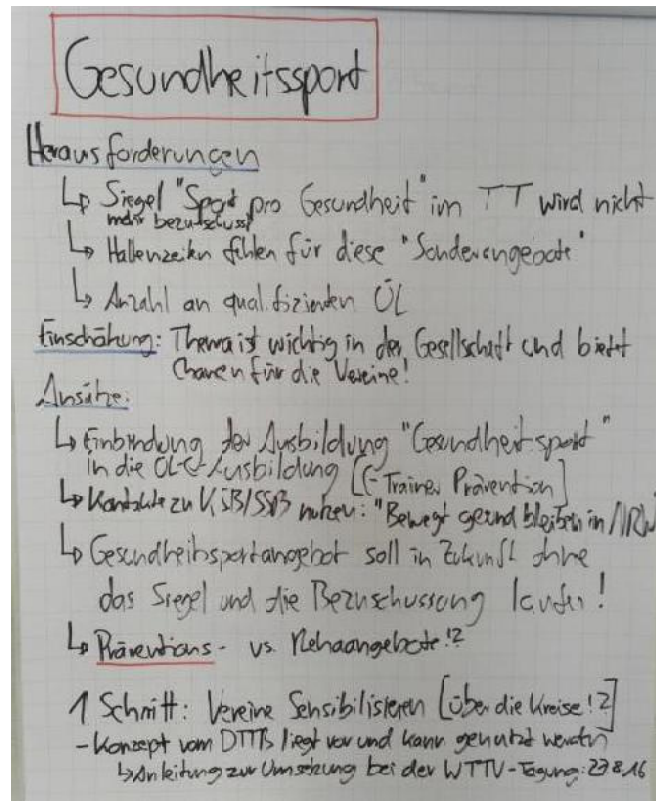 Gesundheitssport
Herausforderungen
↳ Siegel "Sport pro Gesundheit" im TT wird nicht
mehr bezuschusst
↳ Hallenzeiten fehlen für diese "Sonderangebote"
↳ Anzahl an qualifizierten ÜL
Einschätzung: Thema ist wichtig in der Gesellschaft und bietet
Chancen für die Vereine!
Ansätze:
↳ Einbindung der Ausbildung "Gesundheitssport"
in die ÜL-C-Ausbildung [C-Trainer Prävention]
↳ Kontakte zu KSB/SSB nutzen: "Bewegt gesund bleiben in NRW"
↳ Gesundheitssportangebot soll in Zukunft ohne
das Siegel und die Bezuschussung laufen!
↳ Präventions- vs. Rehaangebote!?
1 Schritt: Vereine Sensibilisieren [über die Kreise!?]
- Konzept vom DTTB liegt vor und kann genutzt werden
↳ Anleitung zur Umsetzung bei der WTTV-Tagung: 8.16